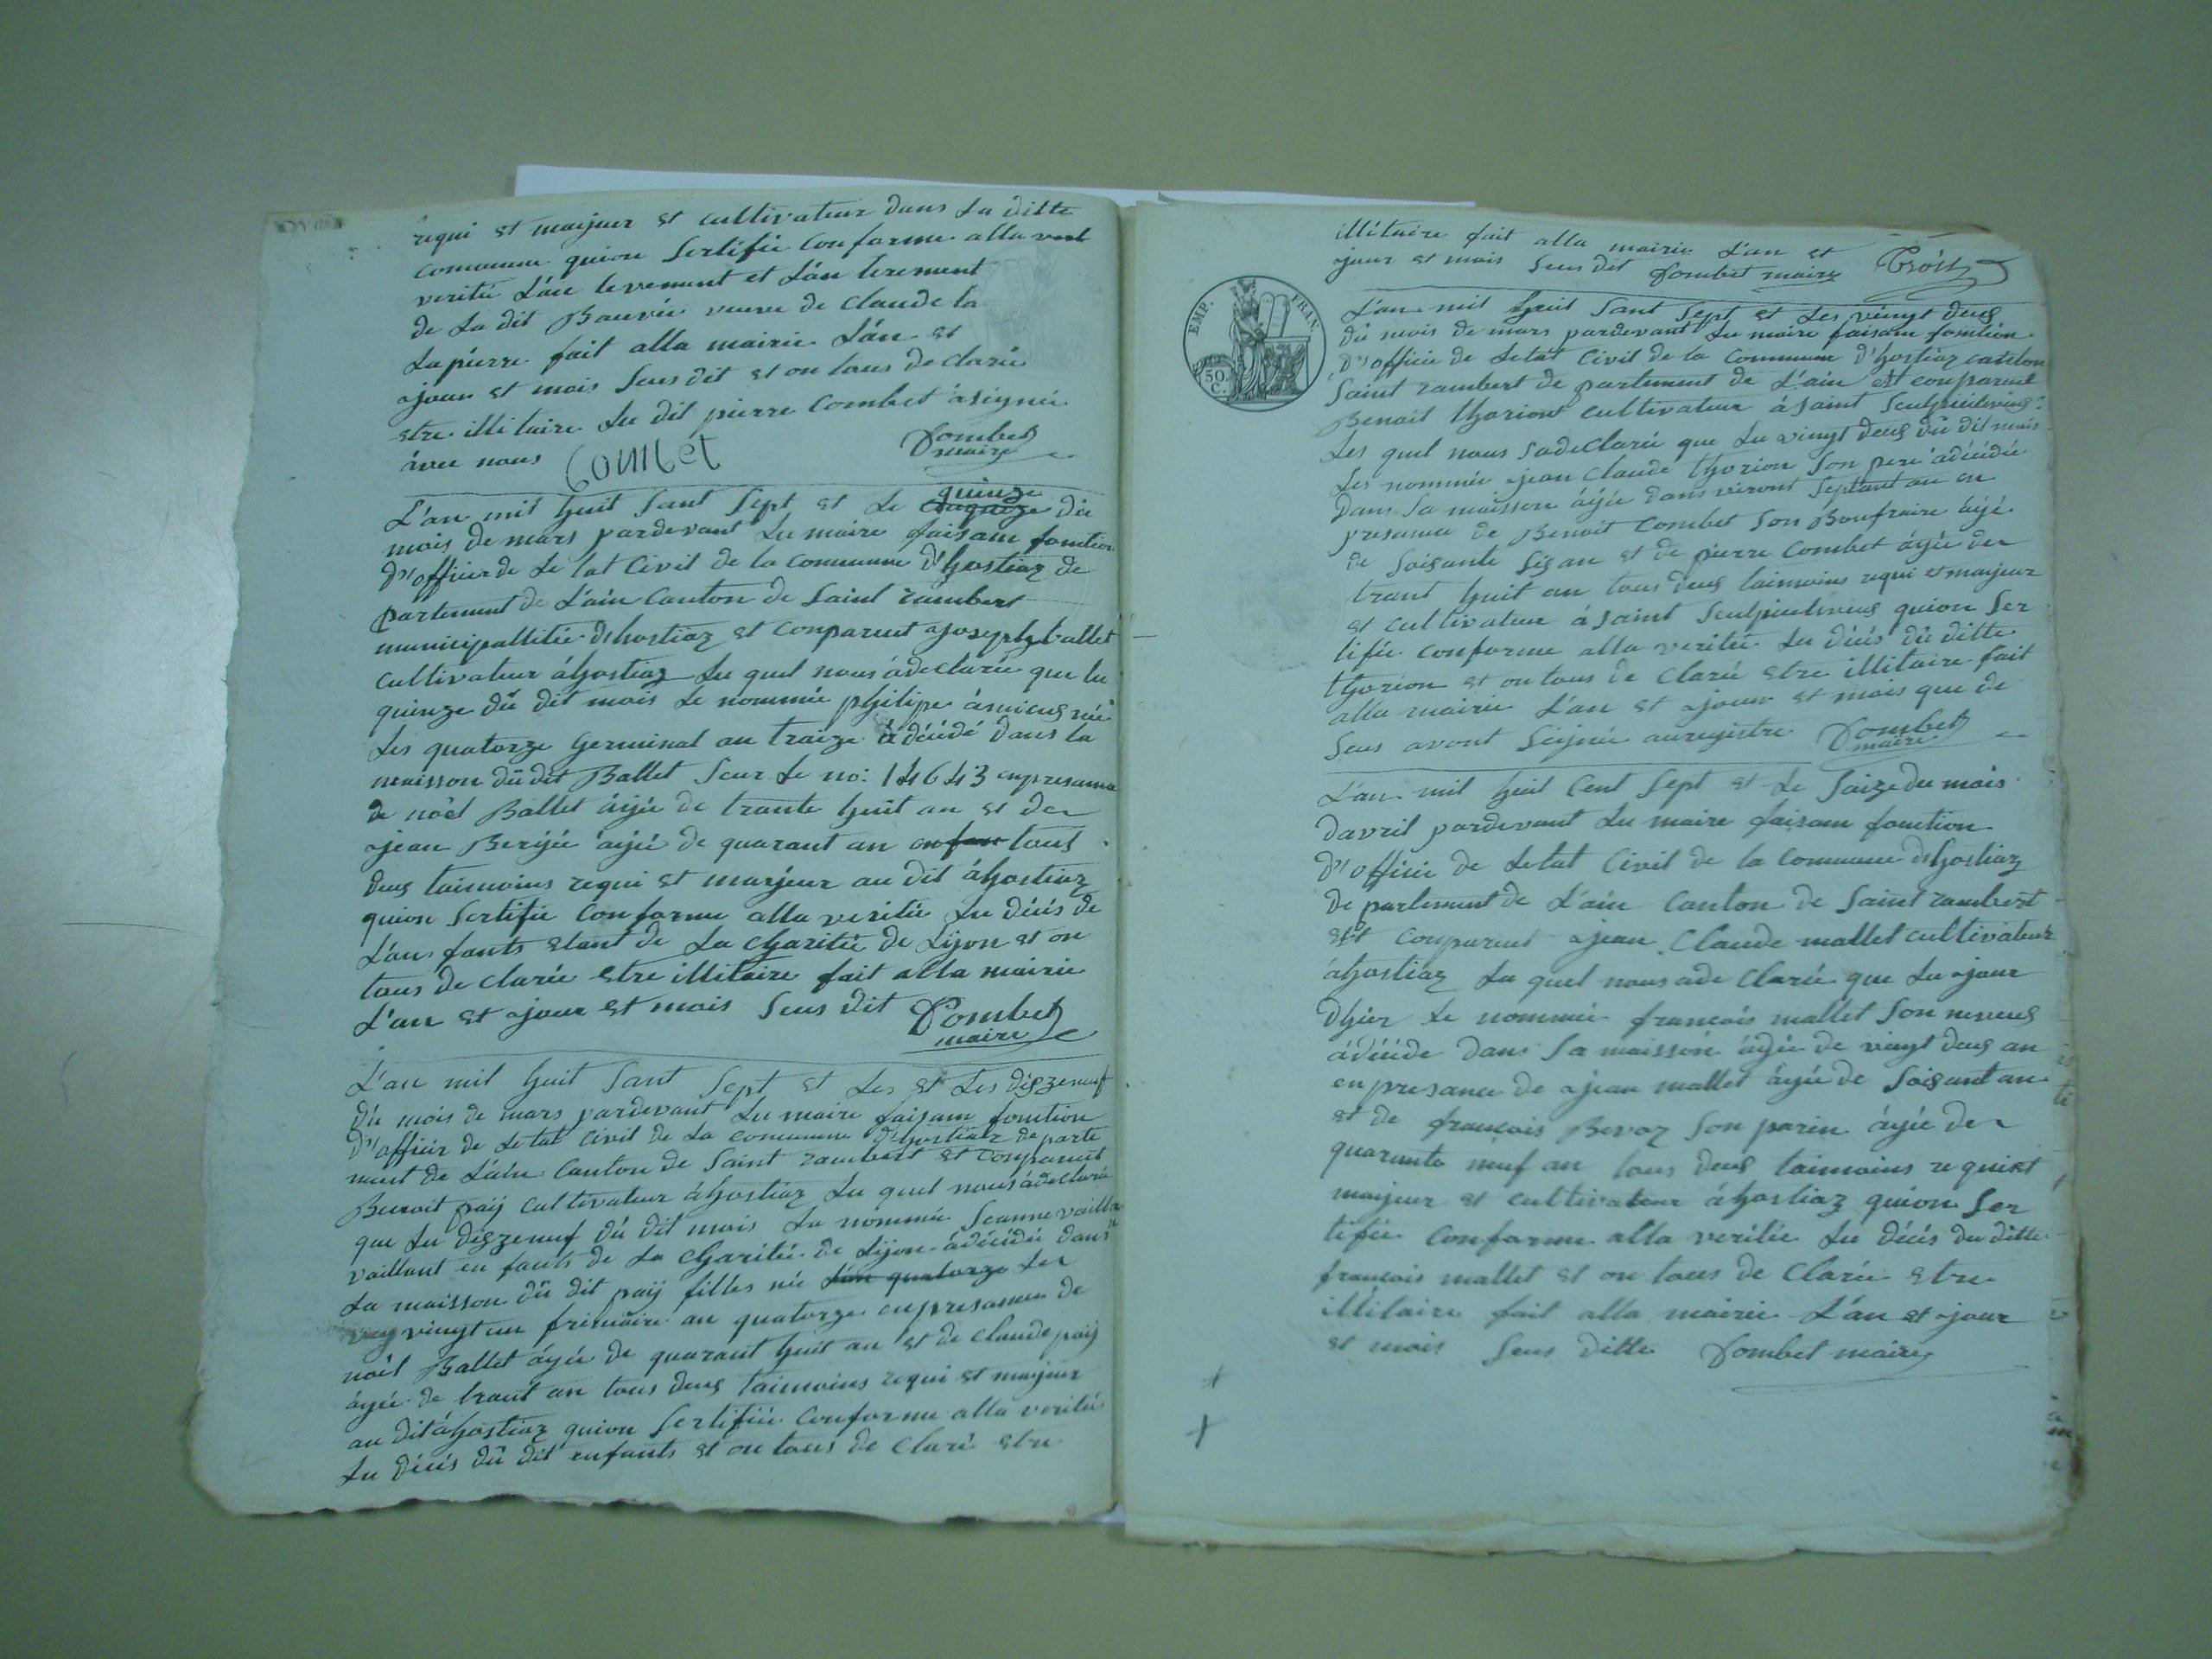 requi et maijeur et cultivateur dans La ditte
commune quion Sertifié Conforme alla verl
verité L'án levement et L'án terement
de La dit Bauvié veuve de Claude la
Lapierre fait alla mairie L'án et
ajour et mois Sus dit et on tous declarée
estre illitaire Lu dit pierre Combet àsignée
ávec nous Combet Combet
maire
L'an mil huit Sant Sept et Le quinze du
mois de mars pardevant Lu maire faisans fontion
d'officier de Le tat Civil de la commune d'hostiaz de
partement de L'ain Canton de Saint rambert
municipallitée d'hostiaz et Conparut ajoseph ballet
Cultivateur áhostiaz Lu quel nous ádeclarée que Lu
quinze dû dit mois Le nommée philipe ámicus née
Les quatorze Germinal an traize á décédé dans la
maisson dû dit Ballet Seur Le no: 14643 enpresance
de noèl Ballet áijée de trante huit an et de
ajean Berijée áijé de quarant an enfan tous
deus taimoins requi et maijeur au dit áhostiaz
quion Sertifié Conforme alla veritée Lu décés de
L'án fants etant de La Charitée de Lijon et on
tous de Clarée estre illitaire fait alla mairie
L'an et ajour et mois Sus dit Combet
maire
L'an mil huit Sant Sept et Les et Les dizzeneuf
Dû mois de mars pardevant Lu maire faisans fontion
d'officier de Le tat Civil de La commune d'hostiaz departe
ment de L'ain Canton de Saint rambert et Conparut
Benoit paij Cultivateur áhostiaz Lu quel nous ádeclarée
que Lu dizzeneuf Dû dit mois La nommée Jeanne
vaillant en fants de La Charitée de Lijon ádécédée dans
La maisson dû dit paij filles née L'an quatorze Les
vingt un frimaire an quatorze enpresance de
noèl Ballet áijée de quarant huit an et de Claude paij
áijée de trant an tous deus taimoins requi et maijeur
au dit áhostiaz quion Sertifiée Conforme alla veritée
Lu décés dû dit enfants et on tous de Claré estre
illitaire fait alla mairie L'an et
ajour et mois Seus dit Combet maire
EMP. FRAN.
50. C.
L'an mil huit Sant Sept et Les vingt deus
dû mois de mars pardevant Lu maire faisans fontion
d'officier de Letat Civil de la Commune d'hostiaz canton
Saint rambert de partement de L'ain est conparut
Benoit thoriont cultivateur á Saint
Les quel nous Sadeclarée que Lu vingt deus dû dit mois
Les nommée ajean Claude thorion Son pere ádécédée
dans Sa maisson áijée dans viront Septant an en
presance de Benoit Combet Son Boufraire áijé
de Soisante Sis an et de pierre Combet áijée de
trant huit an tous deus taimoins requi et maijeur
et cultivateur á Saint quion Ser
tifiée conforme alla veritée Lu décés dû ditte
thorion et on tous de Clarée estre illitaire fait
alla mairie L'an et ajour et mois que de
Seus avont Seignée auregistre Combet
maire
L'an mil huit Cent Sept et Le Saize du mois
davril pardevant Lu maire faisans fontion
d'officier de Letat Civil de la Commune d'hostiaz
de partement de L'ain Canton de Saint rambert
est Conparut ajean Claude mallet cultivateur
áhostiaz Lu quel nous ade Clarée que Lu ajour
dhier Le nommée françois mallet Son neveus
ádécédé dans Sa maisson áijée de vingt deus an
en presance de ajean mallet áijée de Soisant an
et de françois Bevoz Son parin áijée de
quarante neuf an tous deus taimoins requi et
maijeur et cultivateur áhostiaz quion Ser
tifiée Conforme alla veritée Lu décés du ditte
françois mallet et on tous de Clarée estre
illitaire fait alla mairie L'an et ajour
et mois Seus ditte Combet maire